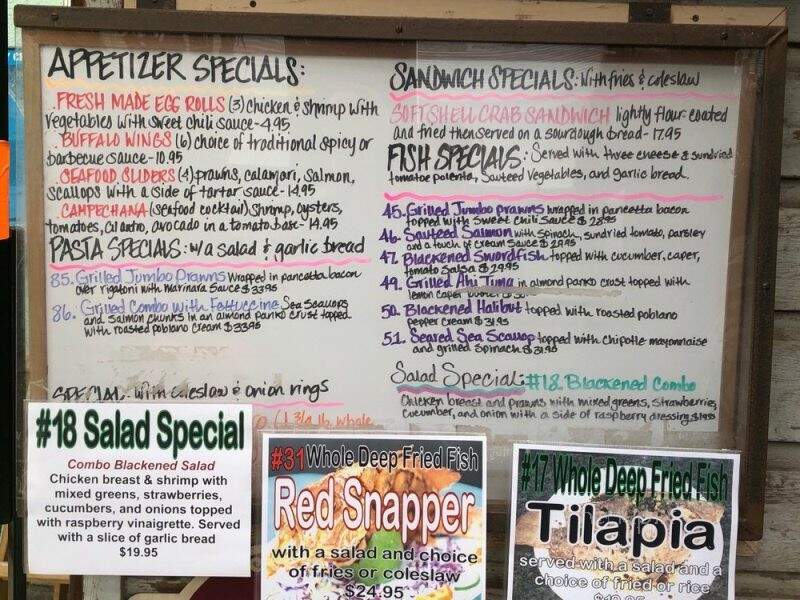 APPETIZER SPECIALS:
FRESH MADE EGG ROLLS (3) chicken & shrimp with
vegetables with sweet chili sauce - 4.95
BUFFALO WINGS (6) choice of traditional spicy or
barbecue sauce - 10.95
SEAFOOD SLIDERS (4) prawns, calamari, salmon,
scallops with a side of tartar sauce - 14.95
CAMPECHANA (seafood cocktail) shrimp, oysters,
tomatoes, cilantro, avocado in a tomato base - 14.95
PASTA SPECIALS: w/a salad & garlic bread
85. Grilled Jumbo Prawns wrapped in pancetta bacon
over rigatoni with marinara sauce $33.95
86. Grilled Combo with Fettuccine Sea Scallops
and Salmon chunks in an almond panko crust topped
with roasted poblano cream $33.95
SPECIAL: with coleslaw & onion rings
(1 3/4 lb. whole
SANDWICH SPECIALS: with fries & coleslaw
SOFTSHELL CRAB SANDWICH lightly flour-coated
and fried then served on a sourdough bread - 17.95
FISH SPECIALS: Served with three cheese & sundried
tomatoe polenta, sauteed vegetables, and garlic bread.
45. Grilled Jumbo prawns wrapped in pancetta bacon
topped with sweet chili sauce $
46. Sauteed Salmon with spinach, sundried tomato, parsley
and a touch of cream sauce $
47. Blackened Swordfish topped with cucumber, caper,
tomato salsa $ 29.95
49. Grilled Ahi Tuna in almond panko crust topped with
lemon caper
50. Blackened Halibut topped with roasted poblano
pepper cream $ 31.95
51. Seared Sea Scallop topped with chipotle mayonnaise
and grilled spinach $ 31.95
Salad Special: #18 Blackened Combo
Chicken breast and prawns with mixed greens, strawberries,
cucumber, and onion with a side of raspberry dressing $19.95
#18 Salad Special
Combo Blackened Salad
Chicken breast & shrimp with
mixed greens, strawberries,
cucumbers, and onions topped
with raspberry vinaigrette. Served
with a slice of garlic bread
$19.95
#31 Whole Deep Fried Fish
Red Snapper
with a salad and choice
of fries or coleslaw
$24.95
#17 Whole Deep Fried Fish
Tilapia
served with a salad and a
choice of fried or rice